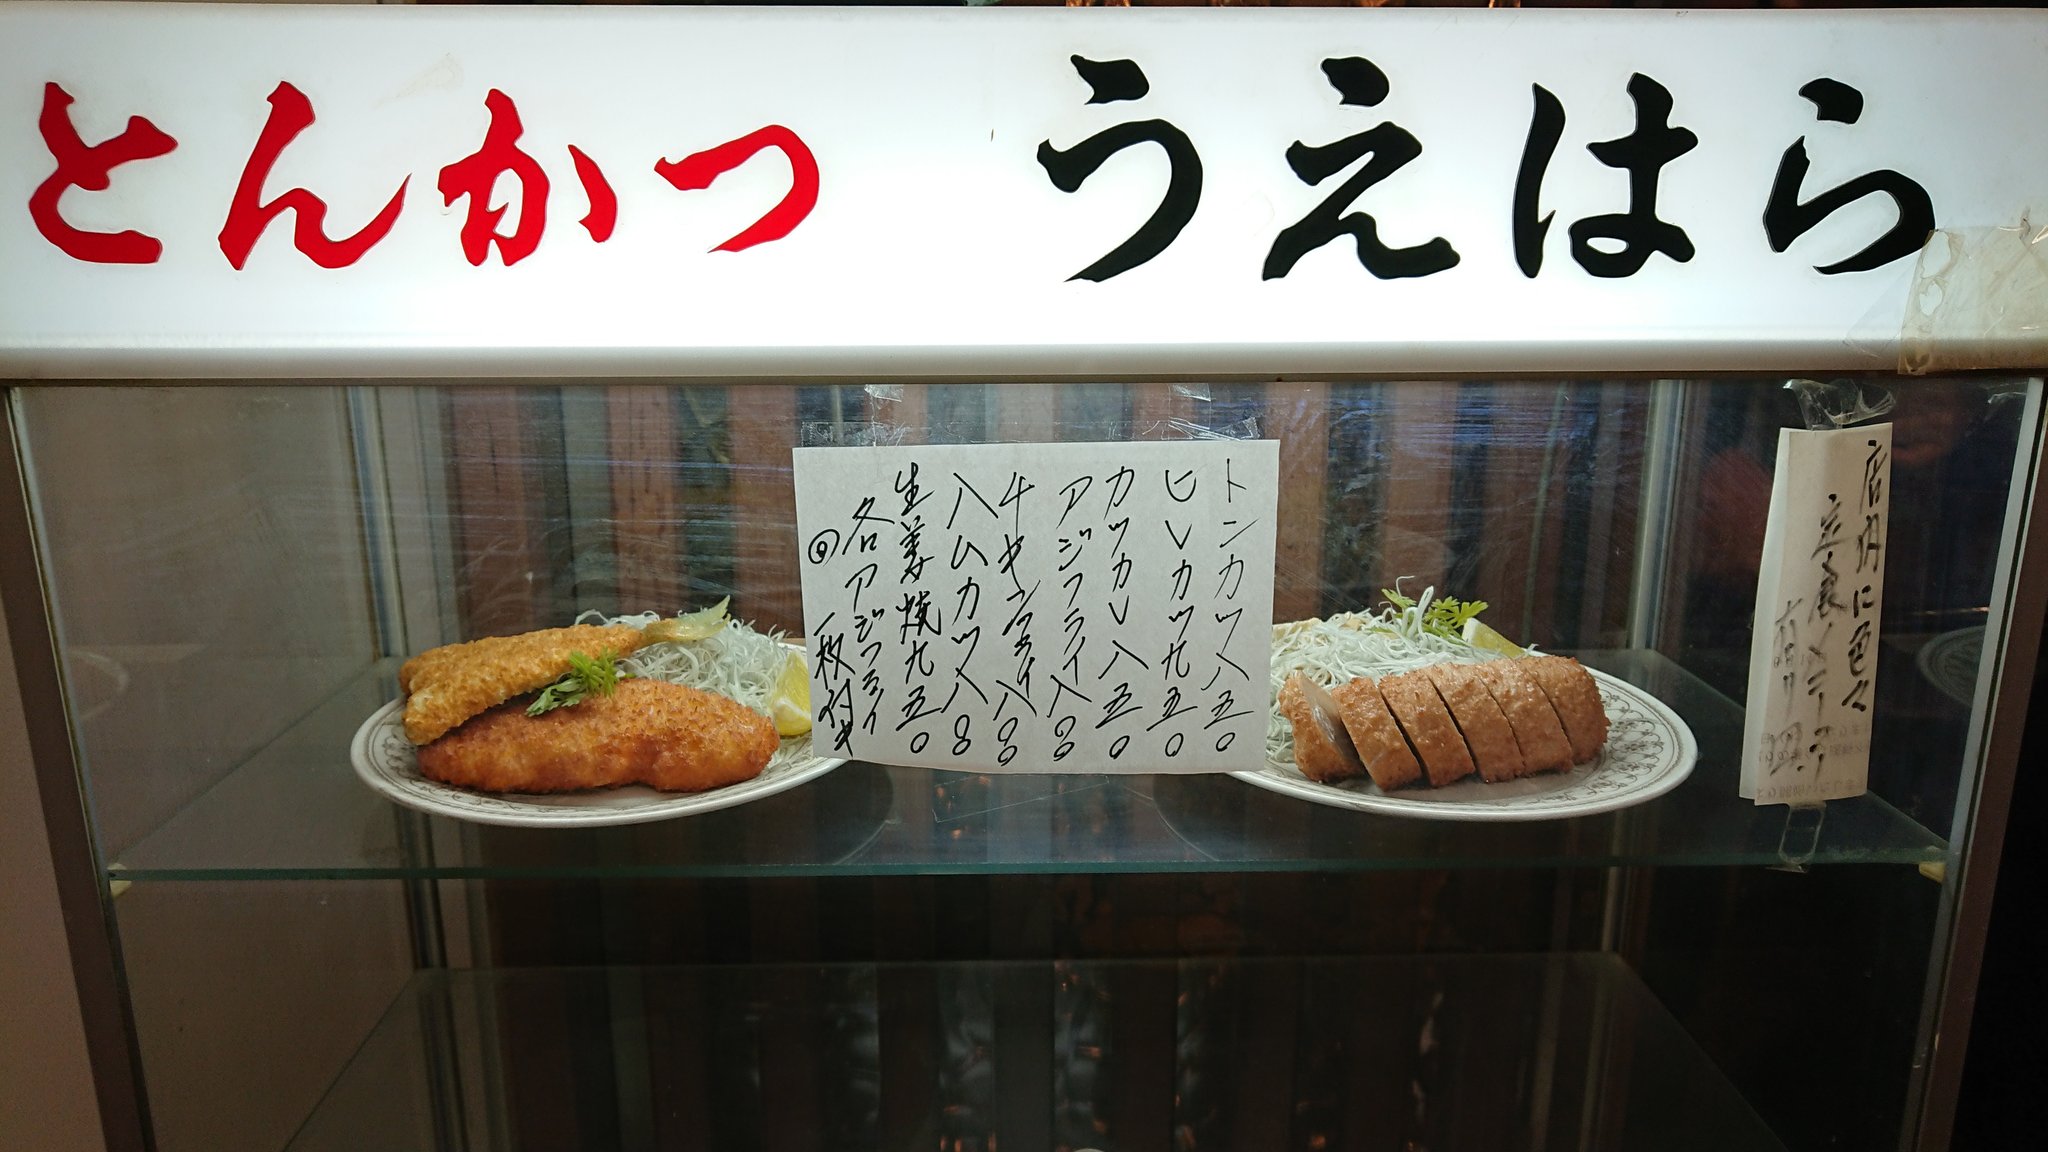 とんかつ うえはら
トンカツ八五〇
ヒレカツ九五〇
カツカレ八五〇
アジフライ八〇〇
チキンフライ八〇〇
ハムカツ八〇〇
生姜焼九五〇
各アジフライ
一枚付き
店内に色々
定食メニュー
有ります